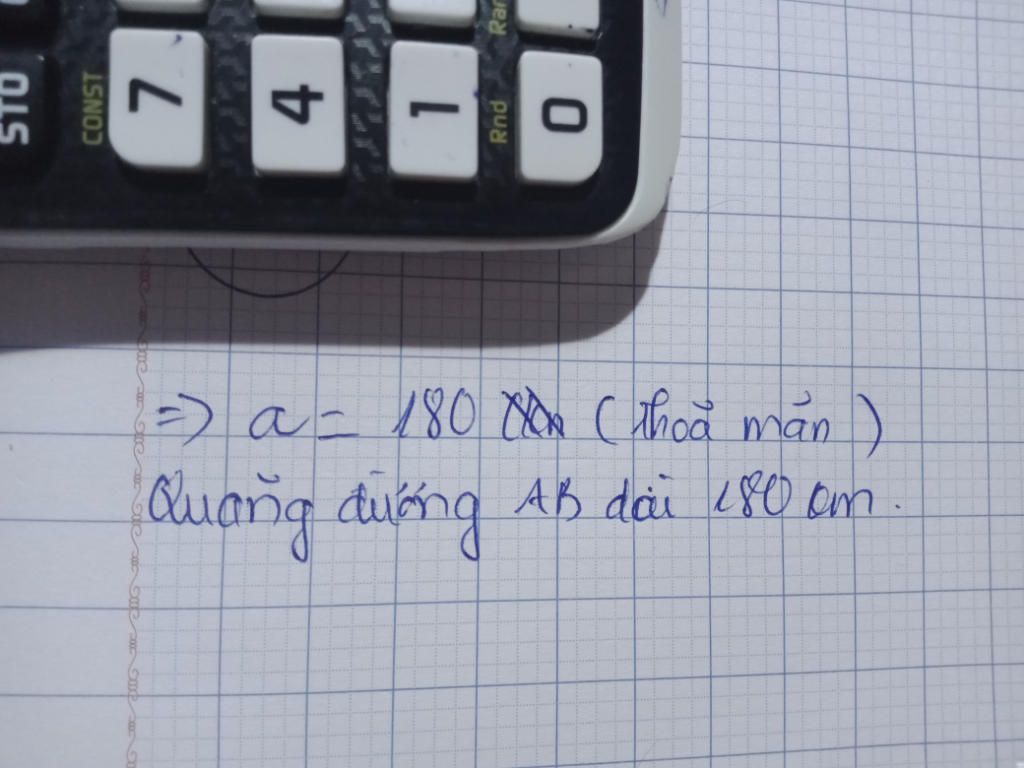 STO
CONST
7
4
1
Rnd
0
Ran
=> a = 180 (thoả mãn)
Quãng đường AB dài 180 cm.